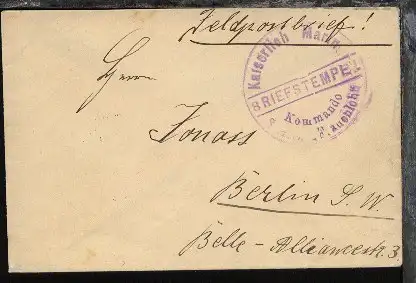 Feldpostbrief!
Kaiserlich Marine
BRIEFSTEMPEL
Kommando
Herrn
Jonass
Berlin S. W.
Belle-Alliancestr. 3